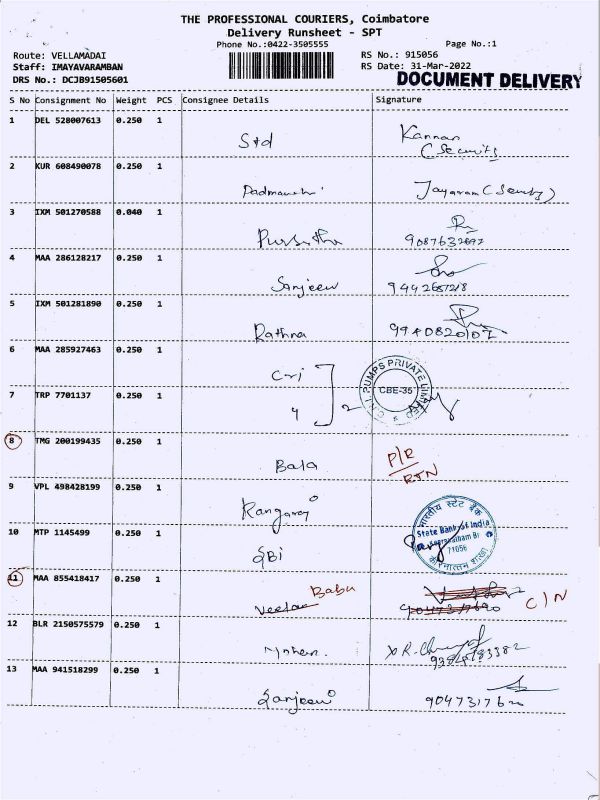 THE PROFESSIONAL COURIERS, Coimbatore
Delivery Runsheet - SPT
Phone No.:0422-3505555
Page No.:1
Route: VELLAMADAI
RS No.: 915056
Staff: IMAYAVARAMBAN
RS Date: 31-Mar-2022
DRS No.: DCJB91505601
DOCUMENT DELIVERY
S No Consignment No Weight PCS Consignee Details Signature
1 DEL 528007613 0.250 1
Std Kannan
(Security
2 KUR 608490078 0.250 1
Jayaram
3 IXM 501270588 0.040 1
4 MAA 286128217 0.250 1
Sanjeev
5 IXM 501281890 0.250 1
Rathna 9940820107
6 MAA 285927463 0.250 1
Cri
C.R.I. PUMPS PRIVATE LIMITED
CBE-35
7 TRP 7701137 0.250 1
2
8 TMG 200199435 0.250 1
Bala P/R
RTN
9 VPL 498428199 0.250 1
Rangaraj
भारतीय स्टेट बैंक
State Bank of India
71056
10 MTP 1145499 0.250 1
SBi
11 MAA 855418417 0.250 1
Babu
C/N
12 BLR 2150575579 0.250 1
Mohan
13 MAA 941518299 0.250 1
Sanjeev